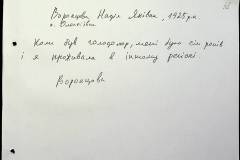 Воронцова Надія Яківна, 1925 р.н.
с. Олексіївка
Коли був голодомор, мені було сім років
і я проживала в іншому регіоні.
Воронцова